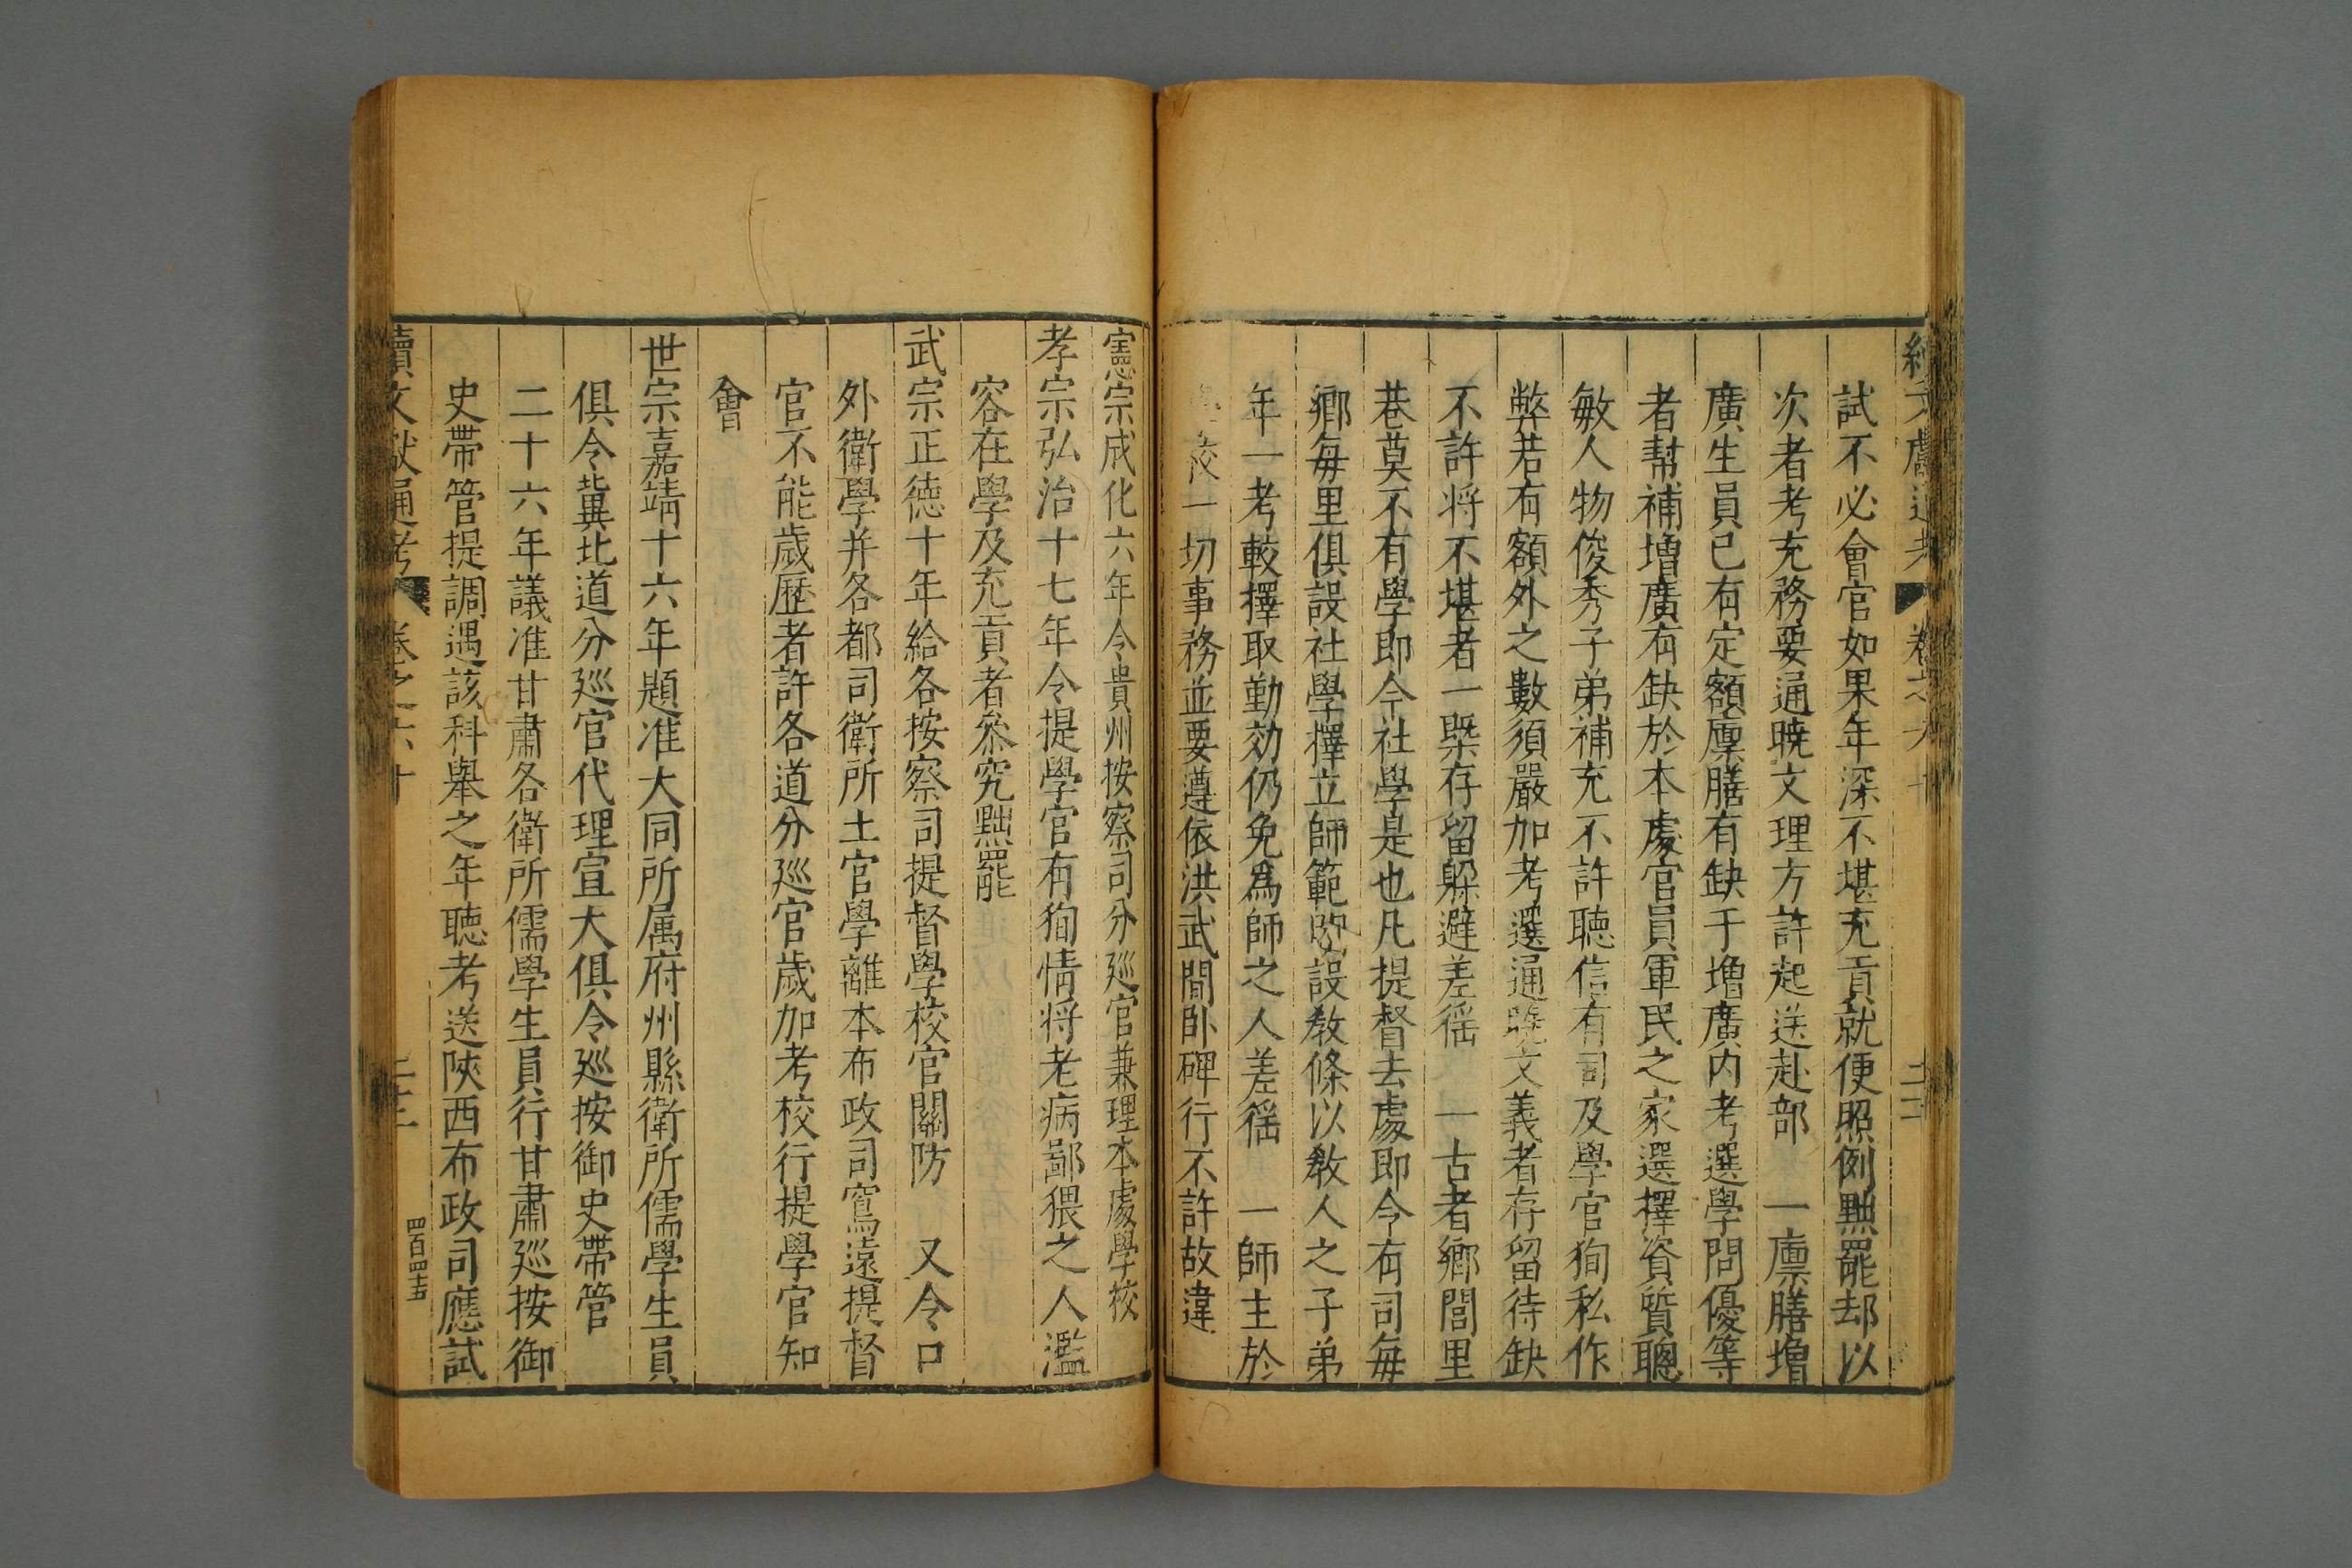 試不必會官如果年深不堪充貢就便照例黜罷却以
次者考充務要通曉文理方許起送赴部　一廪膳增
廣生員已有定額廪膳有缺于增廣内考選學問優等
者幫補增廣有缺於本處官員軍民之家選擇資質聰
敏人物俊秀子弟補充不許聽信有司及學官狥私作
弊若有額外之數須嚴加考選通曉文義者存留待缺
不許将不堪者一槩存留躲避差徭　一古者鄉閭里
巷莫不有學即今社學是也凡提督去處即令有司每
鄉每里俱設社學擇立師範明設教條以教人之子弟
年一考較擇取勤効仍免爲師之人差徭　一師主於
校一切事務並要遵依洪武間卧碑行不許故違
憲宗成化六年令貴州按察司分廵官兼理本處學校
孝宗弘治十七年令提學官有狥情将老病鄙猥之人濫
容在學及充貢者叅究黜罷
武宗正德十年給各按察司提督學校官關防　又令口
外衛學并各都司衛所土官學離本布政司寫遠提督
官不能歲歷者許各道分廵官歲加考校行提學官知
會
世宗嘉靖十六年題准大同所属府州縣衛所儒學生員
俱令冀北道分廵官代理宣大俱令廵按御史帶管
二十六年議准甘肅各衛所儒學生員行甘肅廵按御
史帶管提調遇該科舉之年聽考送陝西布政司應試
續文獻通考　卷之六十
四百四十五